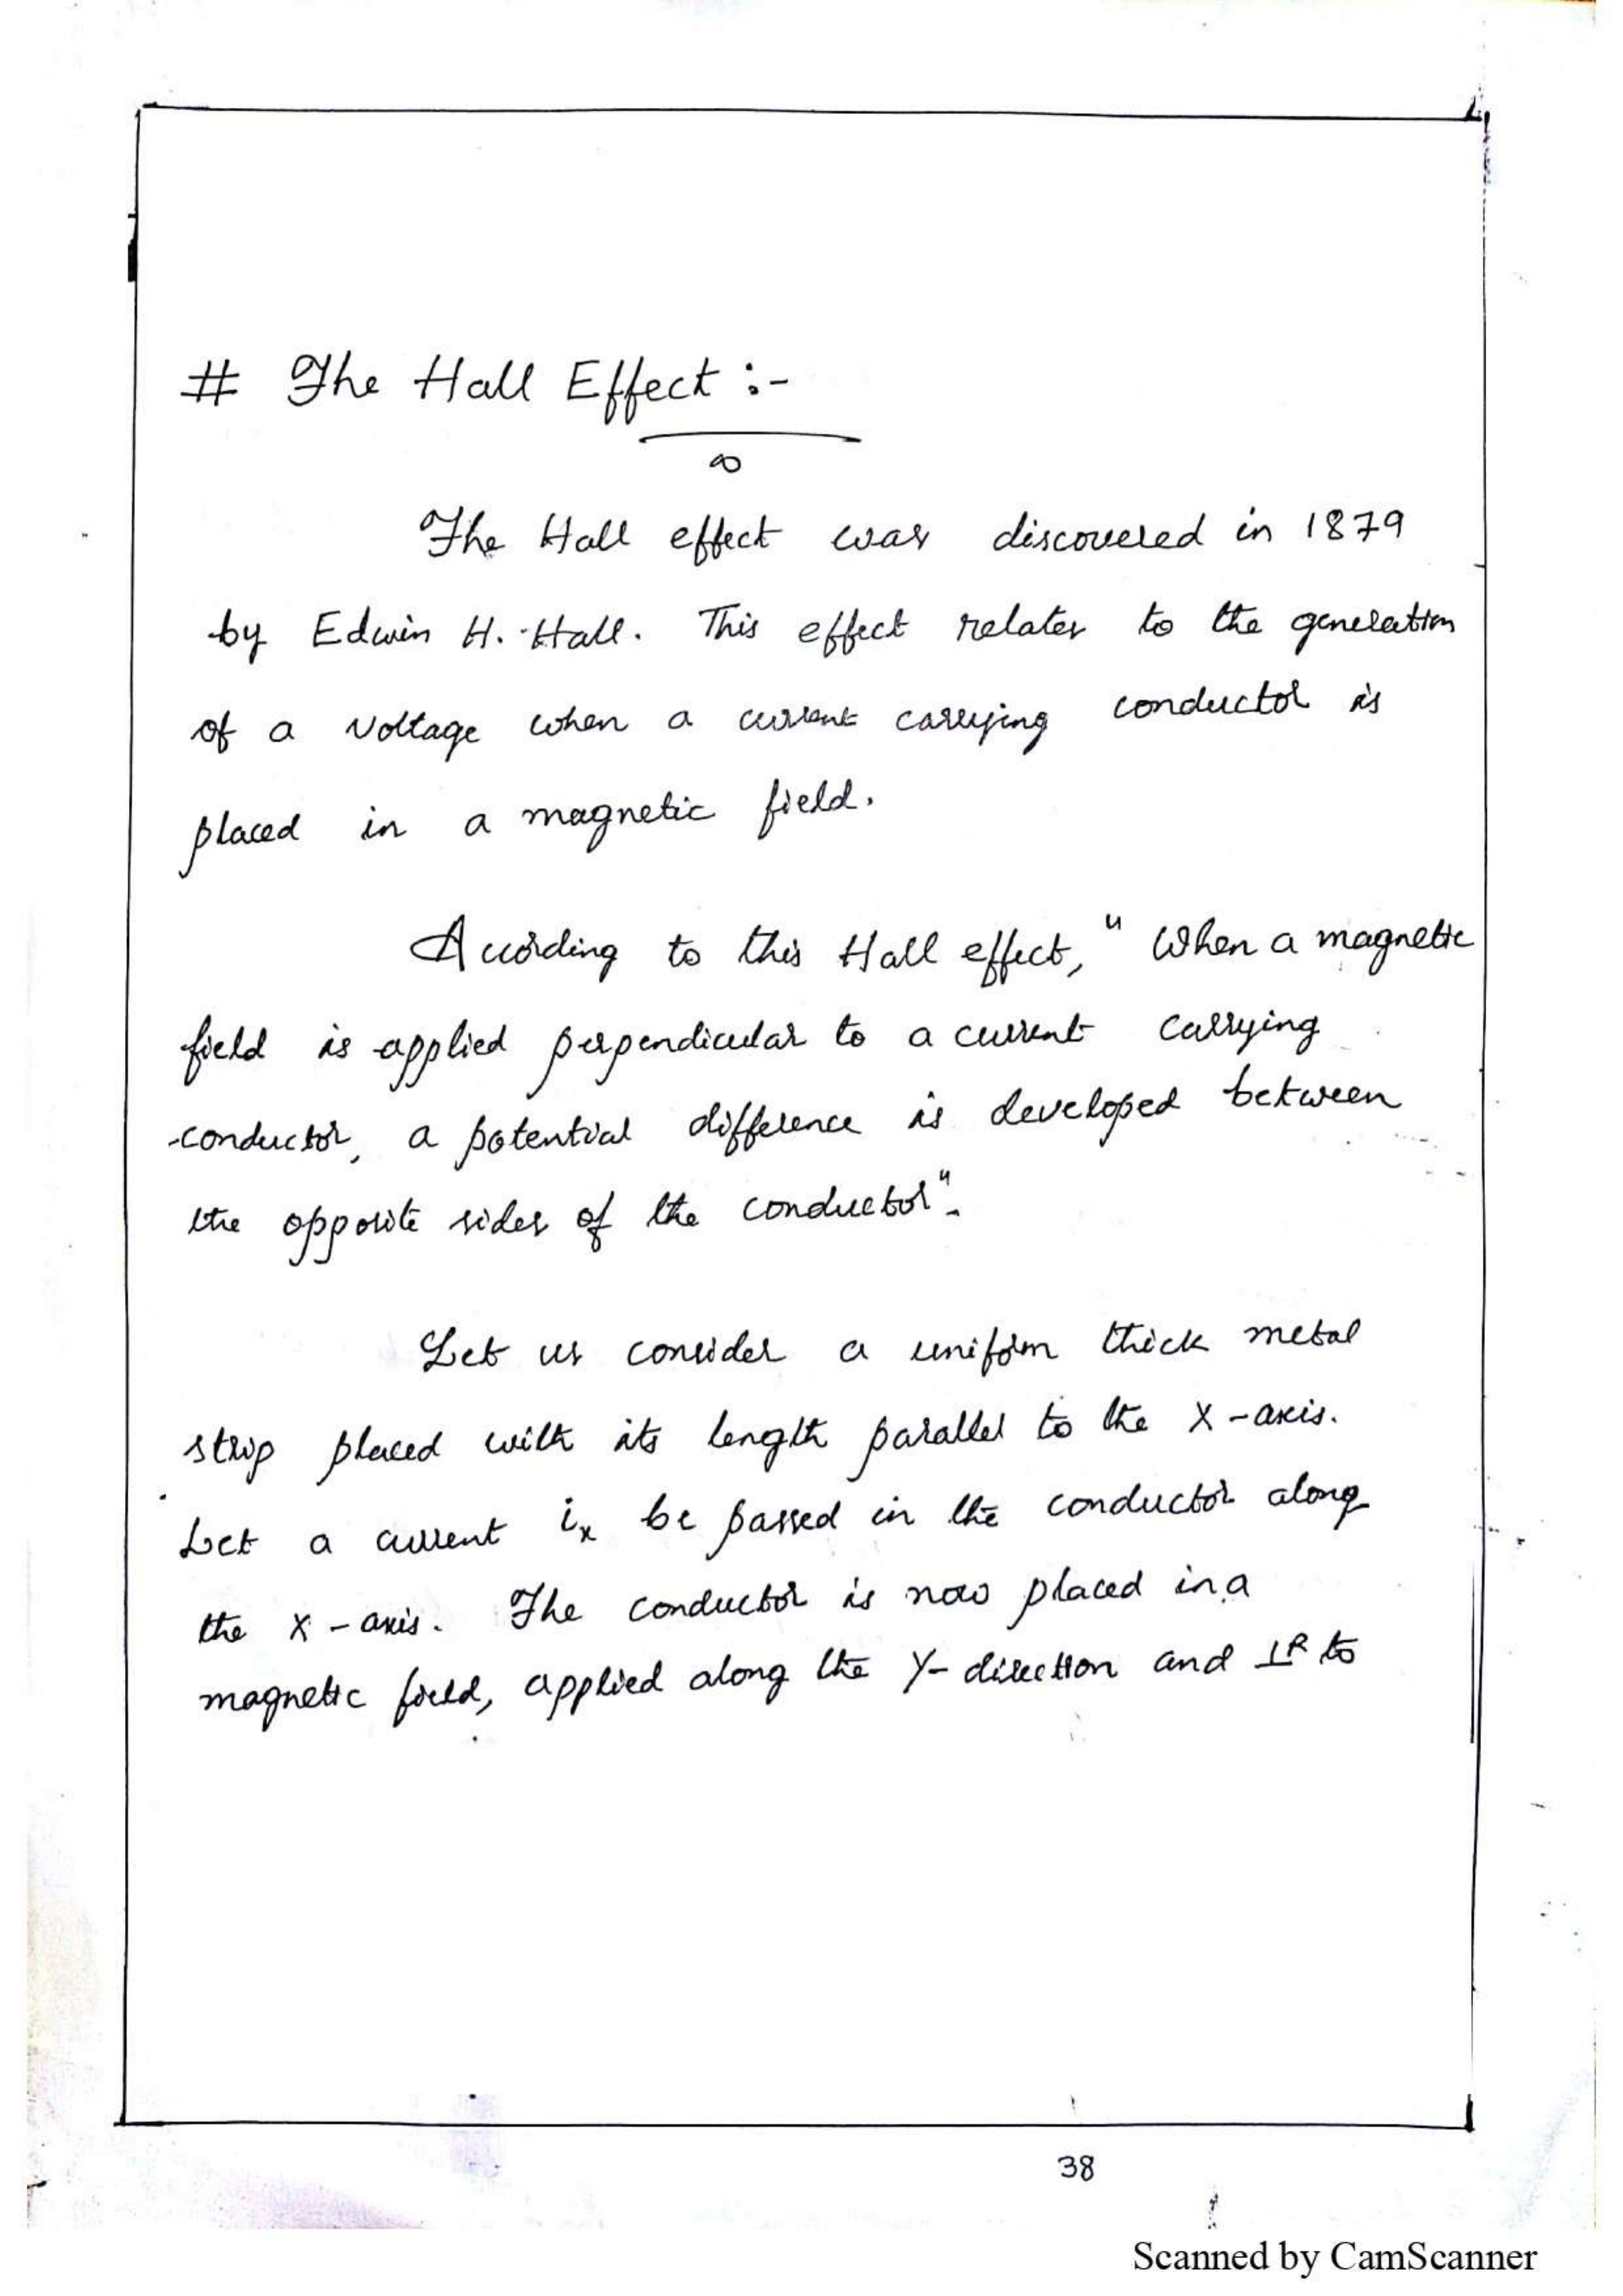 # The Hall Effect :-
The Hall effect was discovered in 1879
by Edwin H. Hall. This effect relates to the generation
of a voltage when a current carrying conductor is
placed in a magnetic field.
According to this Hall effect, " When a magnetic
field is applied perpendicular to a current carrying
conductor, a potential difference is developed between
the opposite sides of the conductor".
Let us consider a uniform thick metal
strip placed with its length parallel to the X-axis.
Let a current iₓ be passed in the conductor along
the X-axis. The conductor is now placed in a
magnetic field, applied along the Y-direction and ⊥ᴿ to
38
Scanned by CamScanner